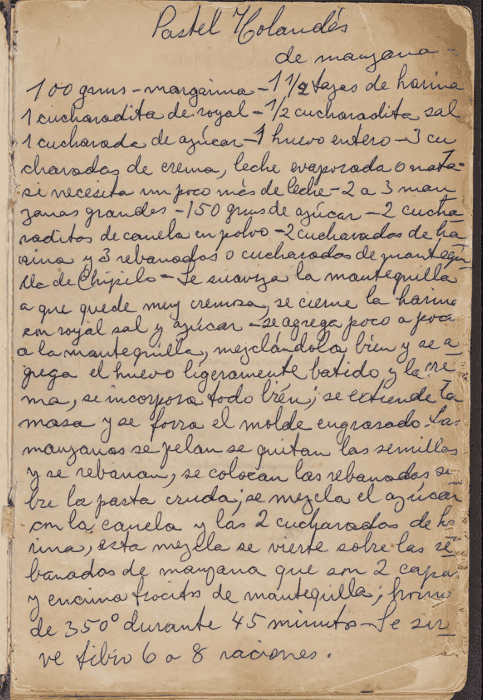 Pastel Holandés
de manzana -
100 grms - margarina - 1 1/2 tazas de harina
1 cucharadita de royal - 1/2 cucharadita sal
1 cucharada de azúcar - 1 huevo entero - 3 cu
charadas de crema, leche evaporada o nata -
si necesita un poco más de leche - 2 a 3 man
zanas grandes - 150 grms de azúcar - 2 cucha
raditas de canela en polvo - 2 cucharadas de ha
rina y 3 rebanadas o cucharadas de mantequi
lla de Chipilo - Se suaviza la mantequilla
a que quede muy cremosa, se cierne la harina
con royal sal y azúcar - se agrega poco a poco
a la mantequilla, mezclándola bien y se a
grega el huevo ligeramente batido y la cre
ma, se incorpora todo bién; se extiende la
masa y se forra el molde engrasado. Las
manzanas se pelan se quitan las semillas
y se rebanan, se colocan las rebanadas so
bre la pasta cruda; se mezcla el azúcar
con la canela y las 2 cucharadas de ha
rina, esta mezcla se vierte sobre las re
banadas de manzana que son 2 capas
y encima trocitos de mantequilla; horno
de 350° durante 45 minutos - Se sir
ve tibio 6 a 8 raciones.